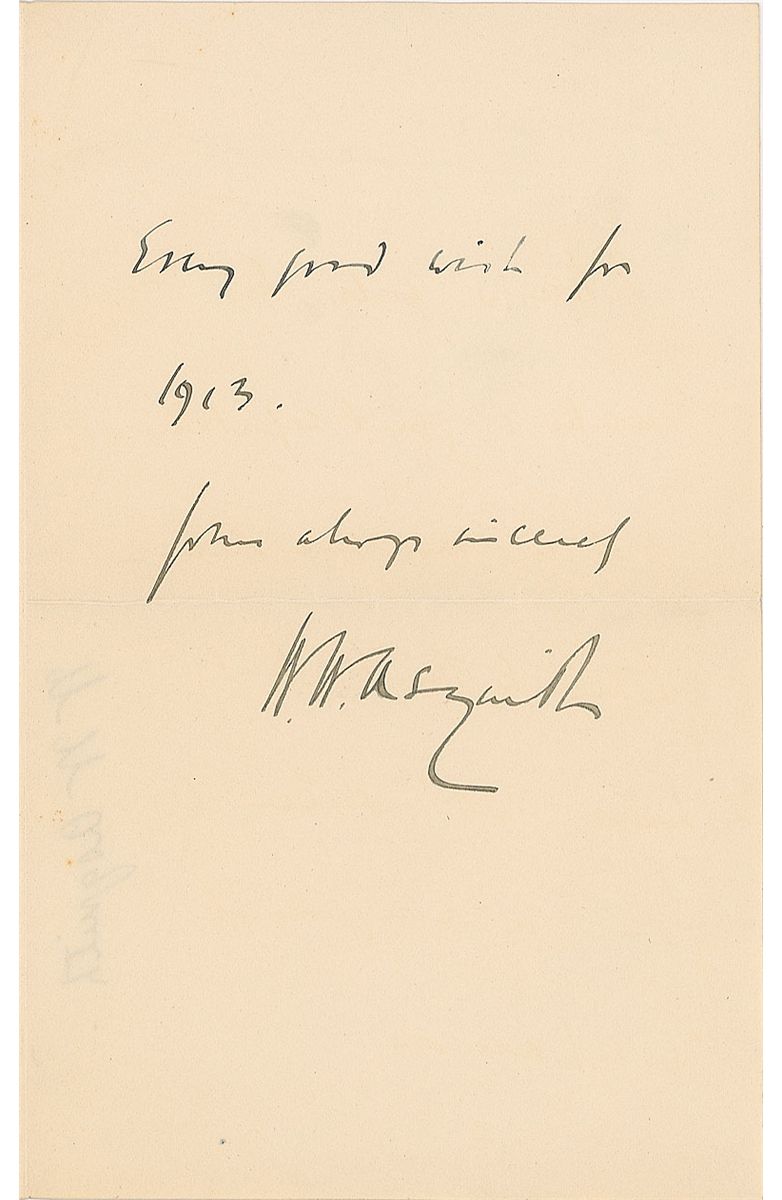 Every good wish for
1913.
Yours always sincerely
H. H. Asquith
H H Asquith